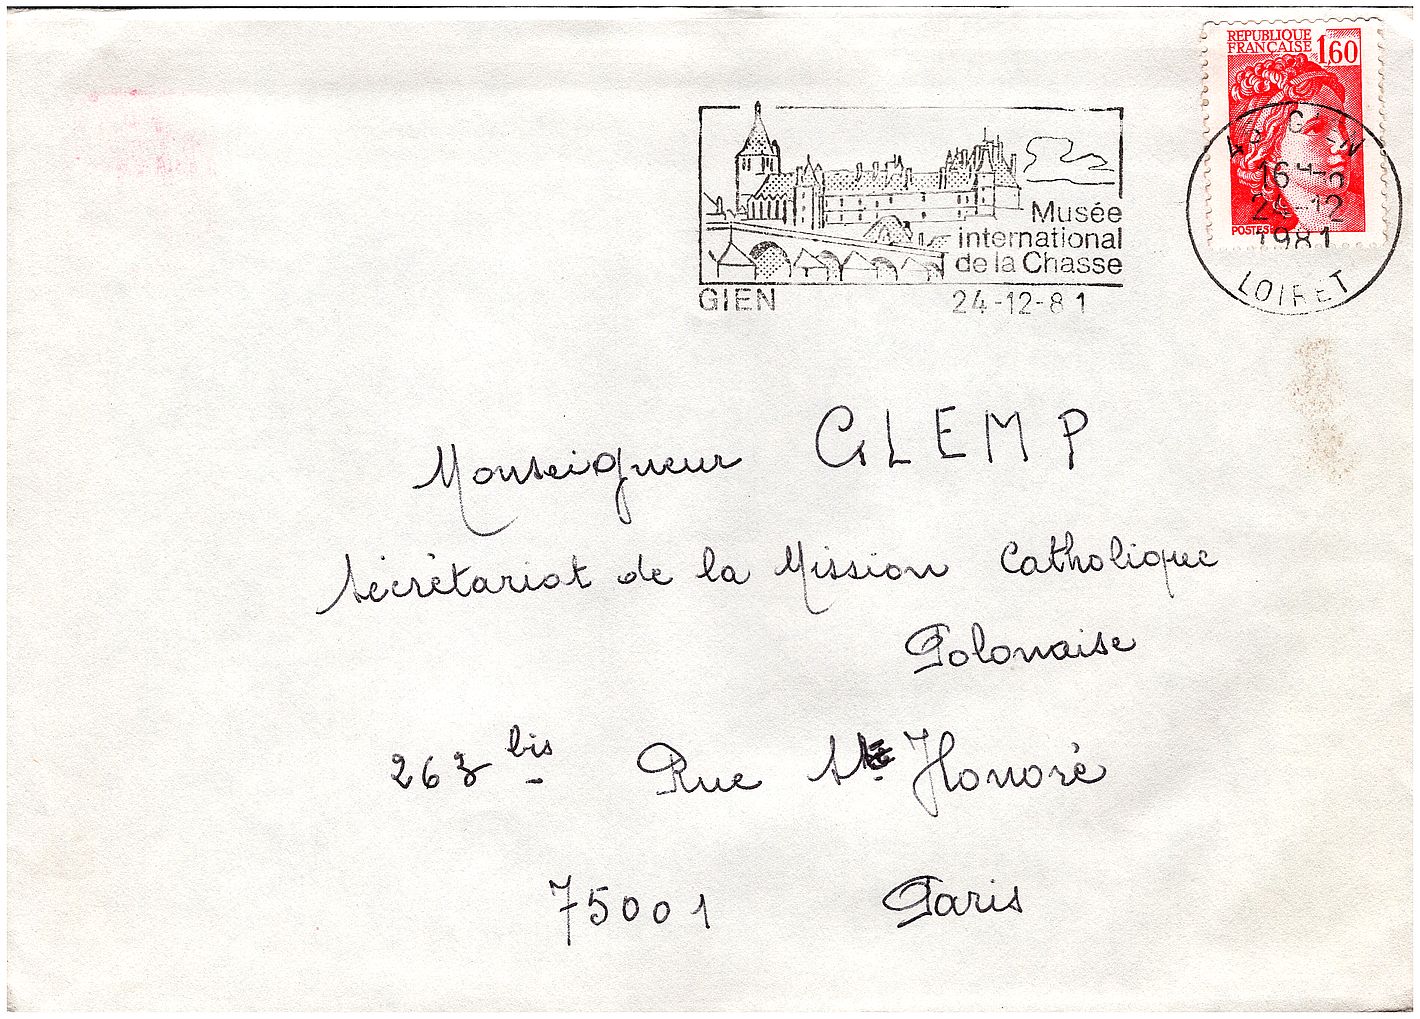 REPUBLIQUE
FRANÇAISE 1,60
POSTES
GIEN
16H
24-12
1981
LOIRET
Musée
international
de la Chasse
GIEN 24-12-81
Monseigneur GLEMP
Sécrétariat de la Mission Catholique
Polonaise
263 bis Rue St Honoré
75001 Paris